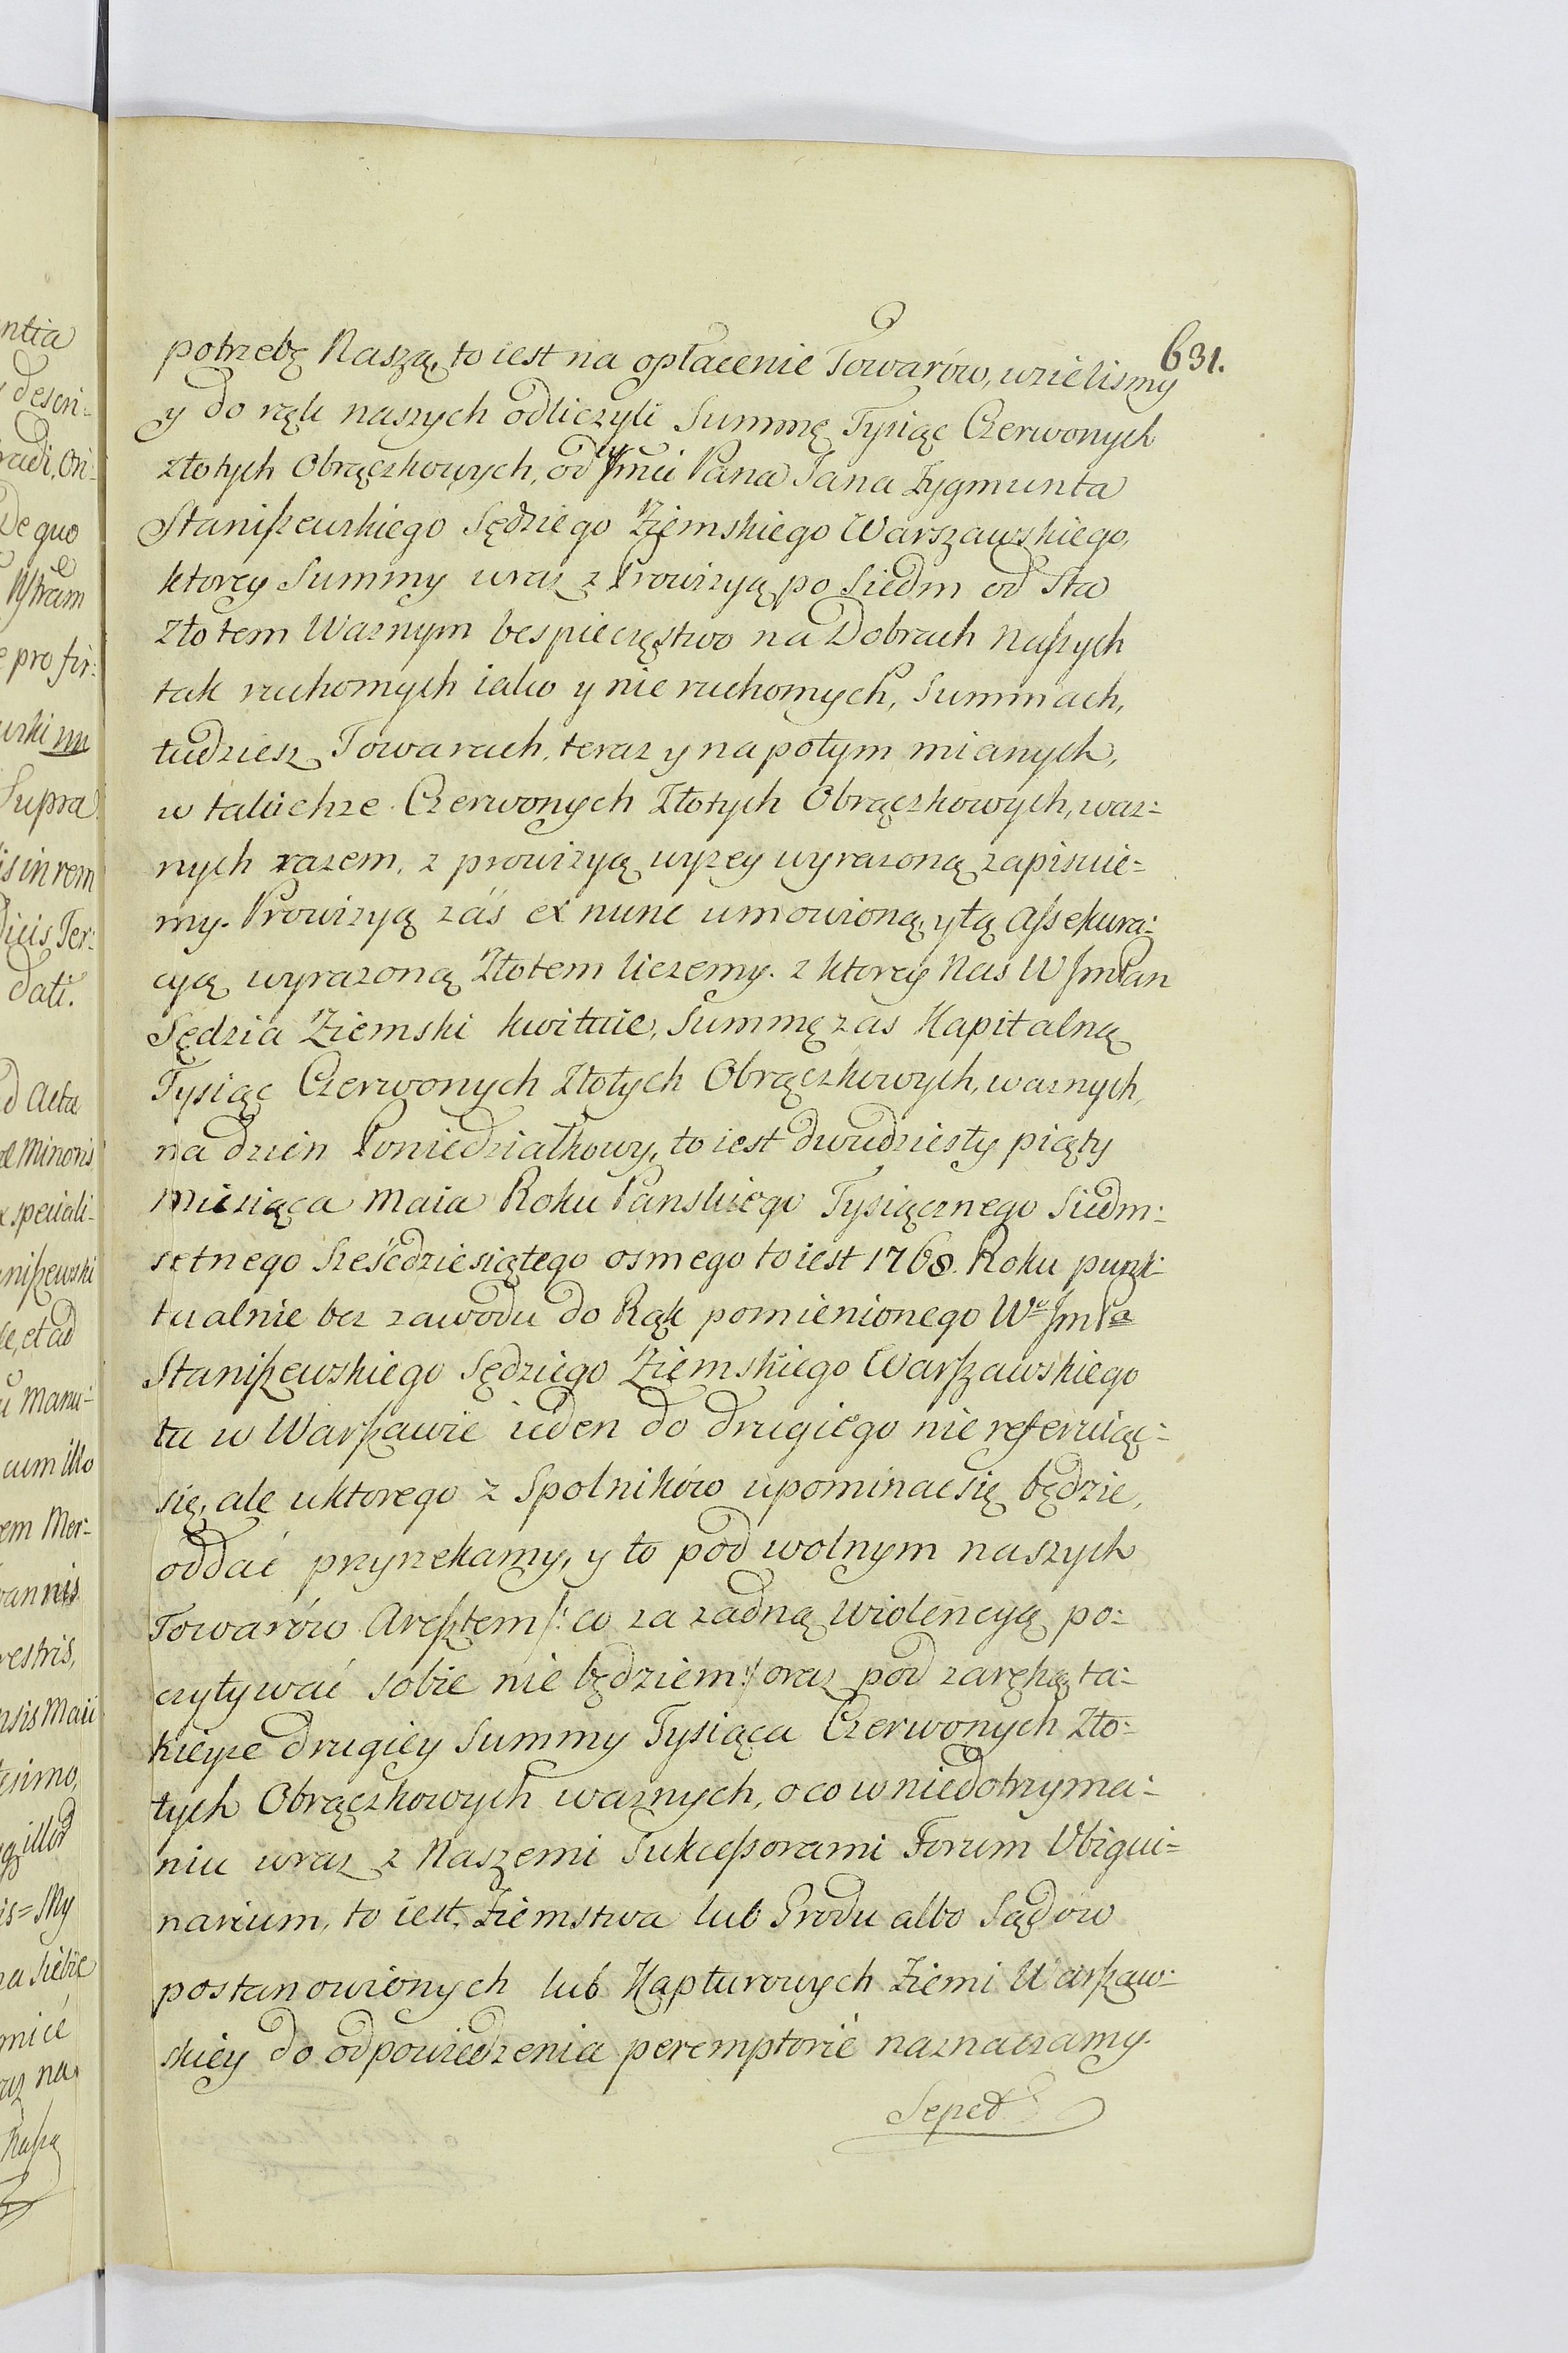 631.
potrzebę Naszą, to iest na opłacenie Towarów, wzielismy
y do rąk naszych odliczyli Summę Tysiąc Czerwonych
złotych Obrączkowych, od Jmci Pana Jana Zygmunta
Staniszewskiego Sędziego Ziemskiego Warszawskiego,
ktorey Summy wraz z Prowizyą po Siedm od Sta
Złotem Waznym bespieczęstwo na Dobrach Naszych
tak ruchomych iako y nie ruchomych, Summach,
tudziesz Towarach, teraz y napotym mianych,
w takichze Czerwonych Złotych Obrączkowych, waz:
nych razem, z prowizyą wyzey wyrazoną zapisuie=
my. Prowizyą zás ex nunc umowioną, y tą Assekura:
cyą wyrazoną Złotem liczemy. z ktorey Nas W JmPan
Sędzia Ziemski kwituie, Summę zas Kapitalną
Tysiąc Czerwonych Złotych Obrączkowych, waznych,
na dzien Poniedziałkowy, to iest dwudziesty piąty
Miesiąca Maia Roku Panskiego Tysiącznego Siedm:
setnego Sześćdziesiątego osmego to iest 1768. Roku punk:
tualnie bez zawodu do Rąk pomienionego Wo JmPa
Staniszewskiego Sędziego Ziemskiego Warszawskiego
tu w Warszawie ieden do drugiego nie referuiąc=
się, ale u ktorego z Spolników upominac się będzie,
oddać przyrzekamy, y to pod wolnym naszych
Towarów Aresztem /: co za zadną wiolencyą po:
czytywać sobie nie będziem :/ oraz pod zaręką ta:
kieyze drugiey Summy Tysiąca Czerwonych Zło:
tych Obrączkowych waznych, o co w niedotrzyma:
niu wraz z Naszemi Sukcessorami Forum Ubiqui=
narium, to iest, Ziemstwa lub Grodu albo Sądów
postanowionych lub Kapturowych Ziemi Warszaw:
skiey do odpowiedzenia peremptorié naznaczamy.